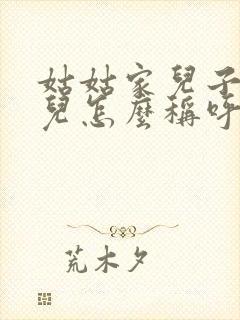 姑姑家兒子
兒怎麼稱呼
荒木夕